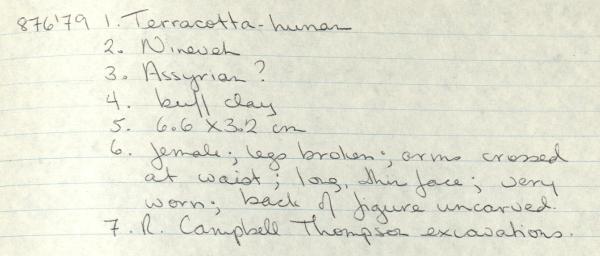 876'79 1. Terracotta-human
2. Nineveh
3. Assyrian?
4. buff clay
5. 6.6 x 3.2 cm
6. female; legs broken; arms crossed
at waist; long, thin face; very
worn; back of figure uncarved.
7. R. Campbell Thompson excavations.